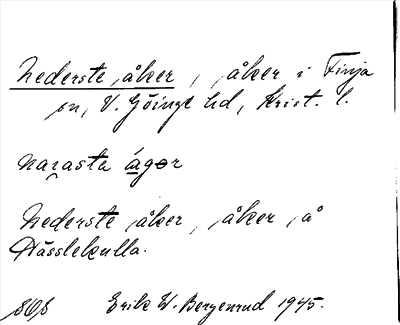 Nederste åker, åker i Finja
sn, V. Göinge hd, Krist. l.
naɽasta ágər
Nederste åker, åker, å
Hässlekulla.
Erik W. Bergenrud 1945.